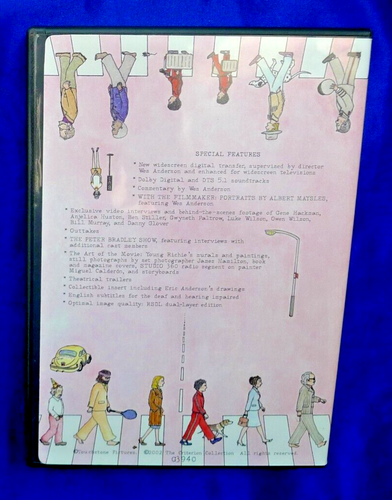 SPECIAL FEATURES
* New widescreen digital transfer, supervised by director
Wes Anderson and enhanced for widescreen televisions
* Dolby Digital and DTS 5.1 soundtracks
* Commentary by Wes Anderson
* WITH THE FILMMAKER: PORTRAITS BY ALBERT MAYSLES,
featuring Wes Anderson
* Exclusive video interviews and behind-the-scenes footage of Gene Hackman,
Anjelica Huston, Ben Stiller, Gwyneth Paltrow, Luke Wilson, Owen Wilson,
Bill Murray, and Danny Glover
* Outtakes
* THE PETER BRADLEY SHOW, featuring interviews with
additional cast members
* The Art of the Movie: Young Richie's murals and paintings,
still photographs by set photographer James Hamilton, book
and magazine covers, STUDIO 360 radio segment on painter
Miguel Calderón, and storyboards
* Theatrical trailers
* Collectible insert including Eric Anderson's drawings
* English subtitles for the deaf and hearing impaired
* Optimal image quality: RSDL dual-layer edition
©Touchstone Pictures. ©2002 The Criterion Collection All rights reserved.
03940